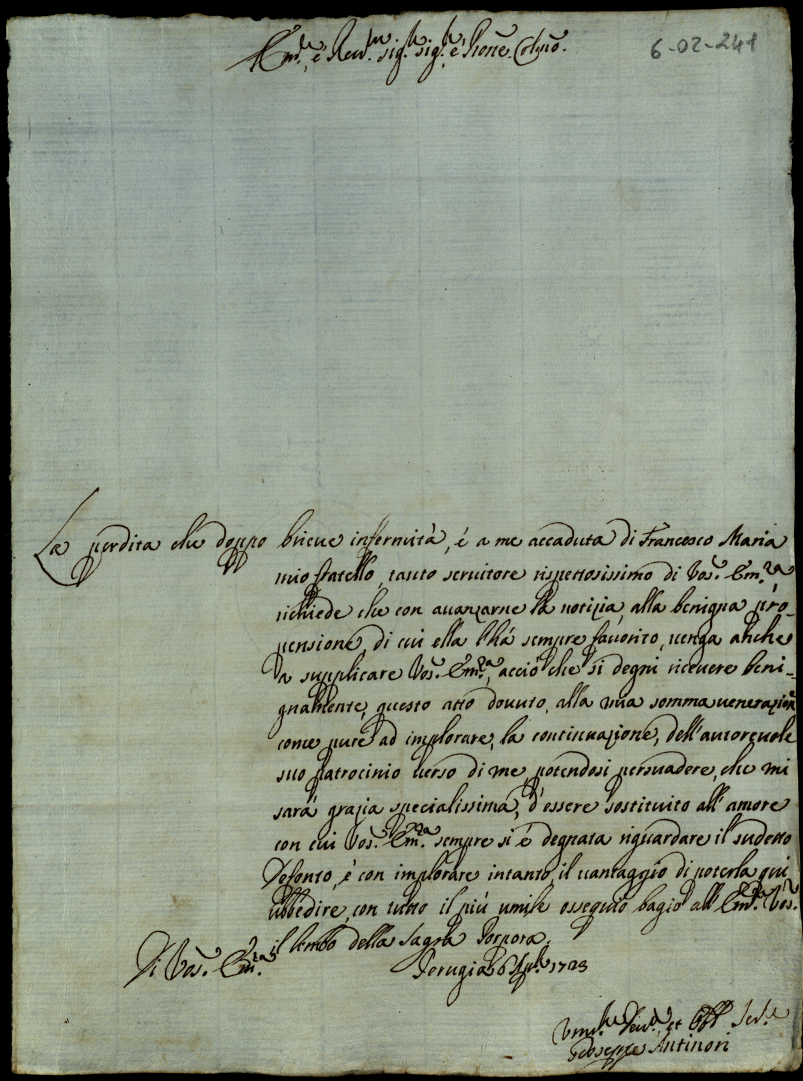 Em.mo, e Rev.mo Sig.r Sig.r, e Prone Colmo.
6-02-241
La perdita che doppo brieve infermità, é a me accaduta di Francesco Maria
mio fratello, tanto servitore rispettosissimo di Vos.a Em.za
richiede che con avanzarne la notizia, alla benigna pro-
pensione, di cui ella l'há sempre favorito, venga anche
a supplicare Vos.a Em.za, acciò che si degni ricevere beni-
gnalmente, questo atto dovuto, alla mia somma venerazione
come pure ad implorare, la continuazione, dell'autorevole
suo patrocinio verso di me, potendosi persuadere, che mi
sará grazia specialissima, d'essere sostituito all'amore
con cui Vos.a Em.za sempre si é degnata riguardare il sudetto
Defonto, é con implorare intanto, il vantaggio di poterla qui
ubbedire, con tutto il piú umile ossequio bagio all'Em.za Vos.a
il lembo della Sagra Porpora.
Di Vos.a Em.za
Perugia 6 1723
et Obb. Ser.e
Gioseppe Antinori